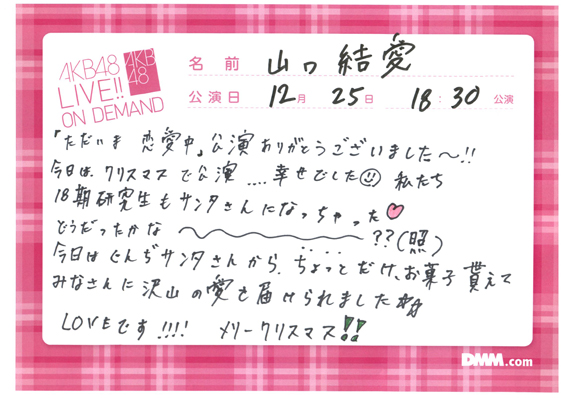 AKB48
LIVE!!
ON DEMAND
AKB
48
名前 山口結愛
公演日 12月 25日 18:30 公演
「ただいま 恋愛中」公演ありがとうございました〜!!
今日は、クリスマスで公演....幸せでした☺ 私たち
18期研究生もサンタさんになっちゃった♥
どうだったかな 〜〜〜 ??(照)
今日は ぐんぢサンタさんから、ちょっとだけ、お菓子貰えて
みなさんに沢山の愛を届けられました
LOVEです!!!! メリークリスマス!!
DMM.com